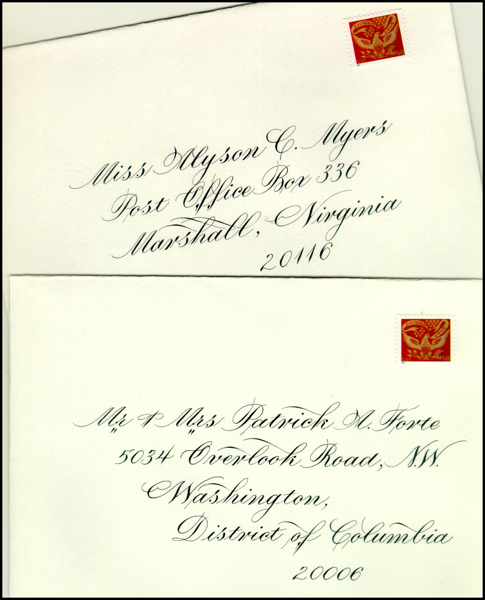 Miss Alyson C. Myers
Post Office Box 336
Marshall, Virginia
20116
Mr & Mrs Patrick A. Forte
5034 Overlook Road, N.W.
Washington,
District of Columbia
20006